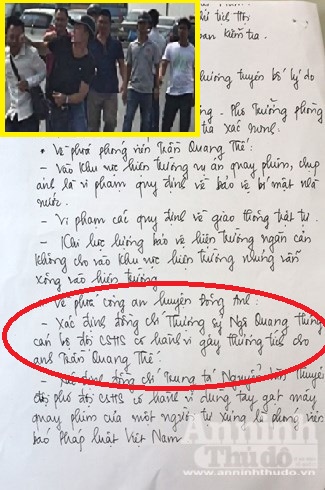 tỉ tịch Thọ
ban kiểm tra.
chương tuyên bố lý do
. Phó Trưởng phòng
xác minh:
* Về phía phóng viên Trần Quang Thế:
Vào khu vực hiện trường vụ án quay phim, chụp
ảnh là vi phạm quy định về bảo vệ bí mật nhà
nước.
- Vi phạm các quy định về giao thông trật tự.
- Khi lực lượng bảo vệ hiện trường ngăn cản
không cho vào khu vực hiện trường nhưng vẫn
xông vào hiện trường.
Về phía công an huyện Đông Anh:
- Xác định đồng chí Thượng sỹ Ngô Quang Hưng
cán bộ đội CSHS có hành vi gây thương tích cho
anh Trần Quang Thế.
- Xác định đồng chí Trung tá Nguyễn Văn Thuyên
đội phó đội CSHS có hành vi dùng tay gạt máy
quay phim của một người tự xưng là phóng viên
báo Pháp luật Việt Nam
Anninh
Thudo.vn
WWW.ANNINHTHUDO.VN